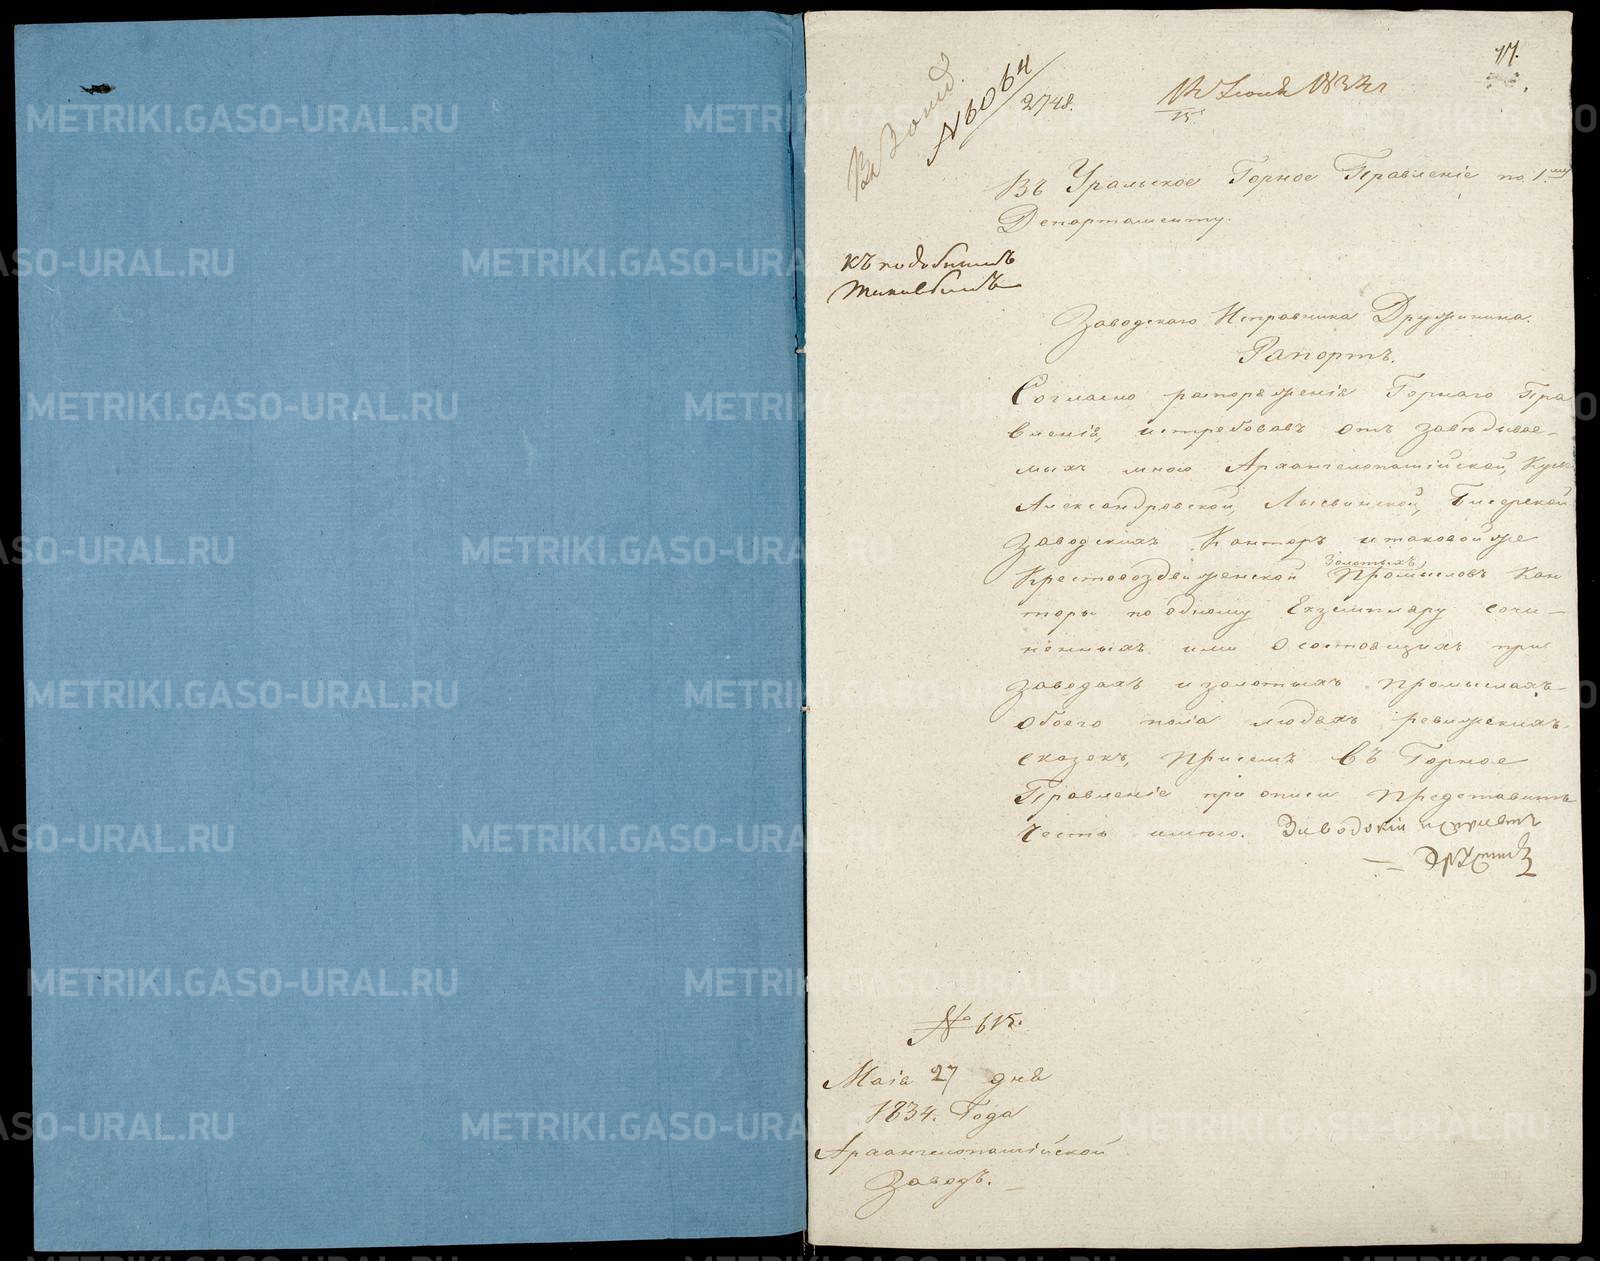 17.
№ 6064
2748.
Въ Уральское Горное Правленіе по 1му
Департаменту.
Къ подобнымъ
Заводскаго Исправника Дружинина.
Рапортъ.
Согласно распоряженія Горнаго Пра
вленія, истребовавъ отъ завѣдывае-
мыхъ мною Архангелопашійской, Кусье
Александровской, Лысвинской, Бисерской
Заводскихъ Канторъ и таковой же
Крестовоздвиженской Золотыхъ Промысловъ Кан
торы по одному Екземпляру сочи-
ненныхъ ими о состоящихъ при
заводахъ и золотыхъ промыслахъ
обоего пола людяхъ ревижскихъ
сказокъ, при семъ въ Горное
Правленіе при описи представить
честь имѣю. Заводскій исправникъ
№ 615.
Маія 27 дня
1834. Года
Архангелопашійской
Заводъ.
METRIKI.GASO-URAL.RU